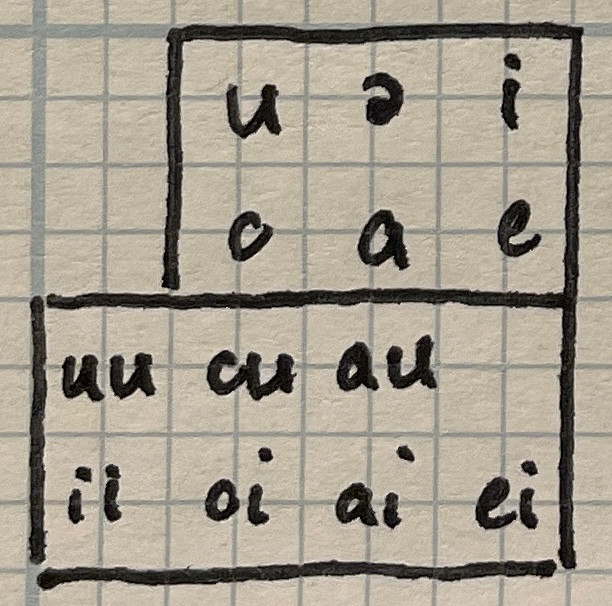 u ə i
c a e
uu cu au
ii oi ai ei